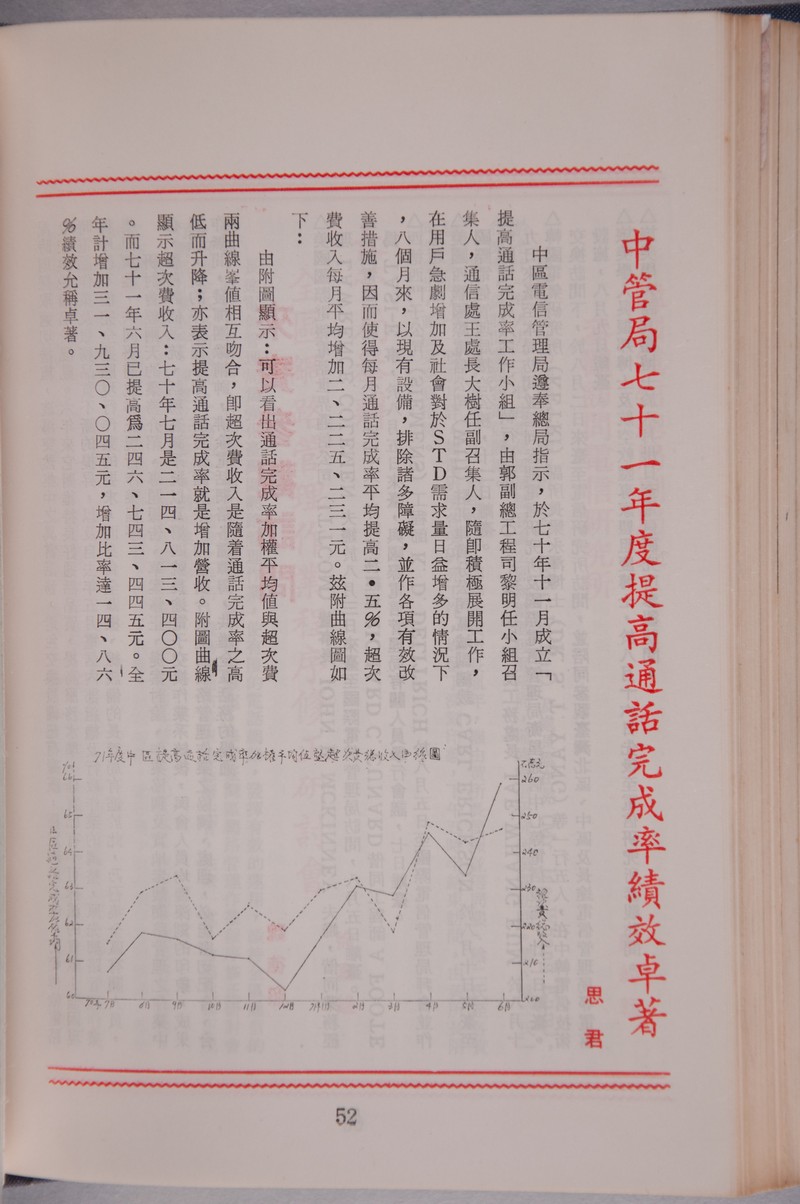 中管局七十一年度提高通話完成率績效卓著
思君
中區電信管理局遵奉總局指示,於七十年十一月成立「
提高通話完成率工作小組」,由郭副總工程司黎明任小組召
集人,通信處王處長大樹任副召集人,隨即積極展開工作,
在用戶急劇增加及社會對於STD需求量日益增多的情況下
,八個月來,以現有設備,排除諸多障礙,並作各項有效改
善措施,因而使得每月通話完成率平均提高二•五%,超次
費收入每月平均增加二、二二五、二三一元。茲附曲線圖如
下:
由附圖顯示:可以看出通話完成率加權平均值與超次費
兩曲線峯值相互吻合,即超次費收入是隨着通話完成率之高
低而升降;亦表示提高通話完成率就是增加營收。附圖曲線
顯示超次費收入:七十年七月是二一四、八一三、四〇〇元
。而七十一年六月已提高為二四六、七四三、四四五元。全
年計增加三一、九三〇、〇四五元,增加比率達一四、八六
%績效允稱卓著。
260
250
240
230
220
210
200
65
64
63
62
61
60
7月
8月
9月
10月
11月
12月
71年1月
2月
3月
4月
5月
6月
52